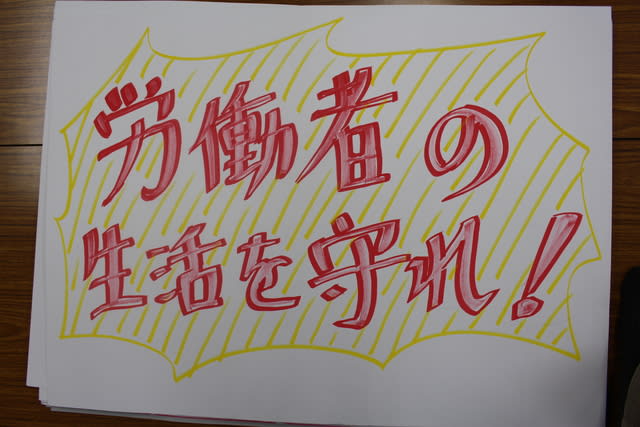 労働者の
生活を守れ！